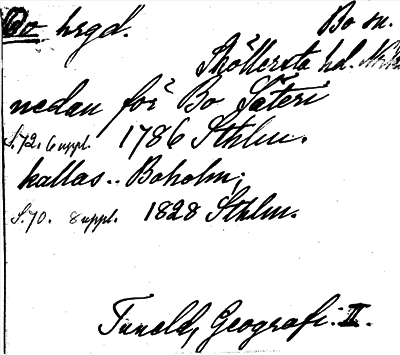 Bo hrgd. Bo sn.
Sköllersta hd. När
nedan för Bo Säteri
S. 72. 6 uppl. 1786 Sthlm.
kallas.. Boholm;
S. 70. 8 uppl. 1828 Sthlm.
Tuneld, Geografi. II.